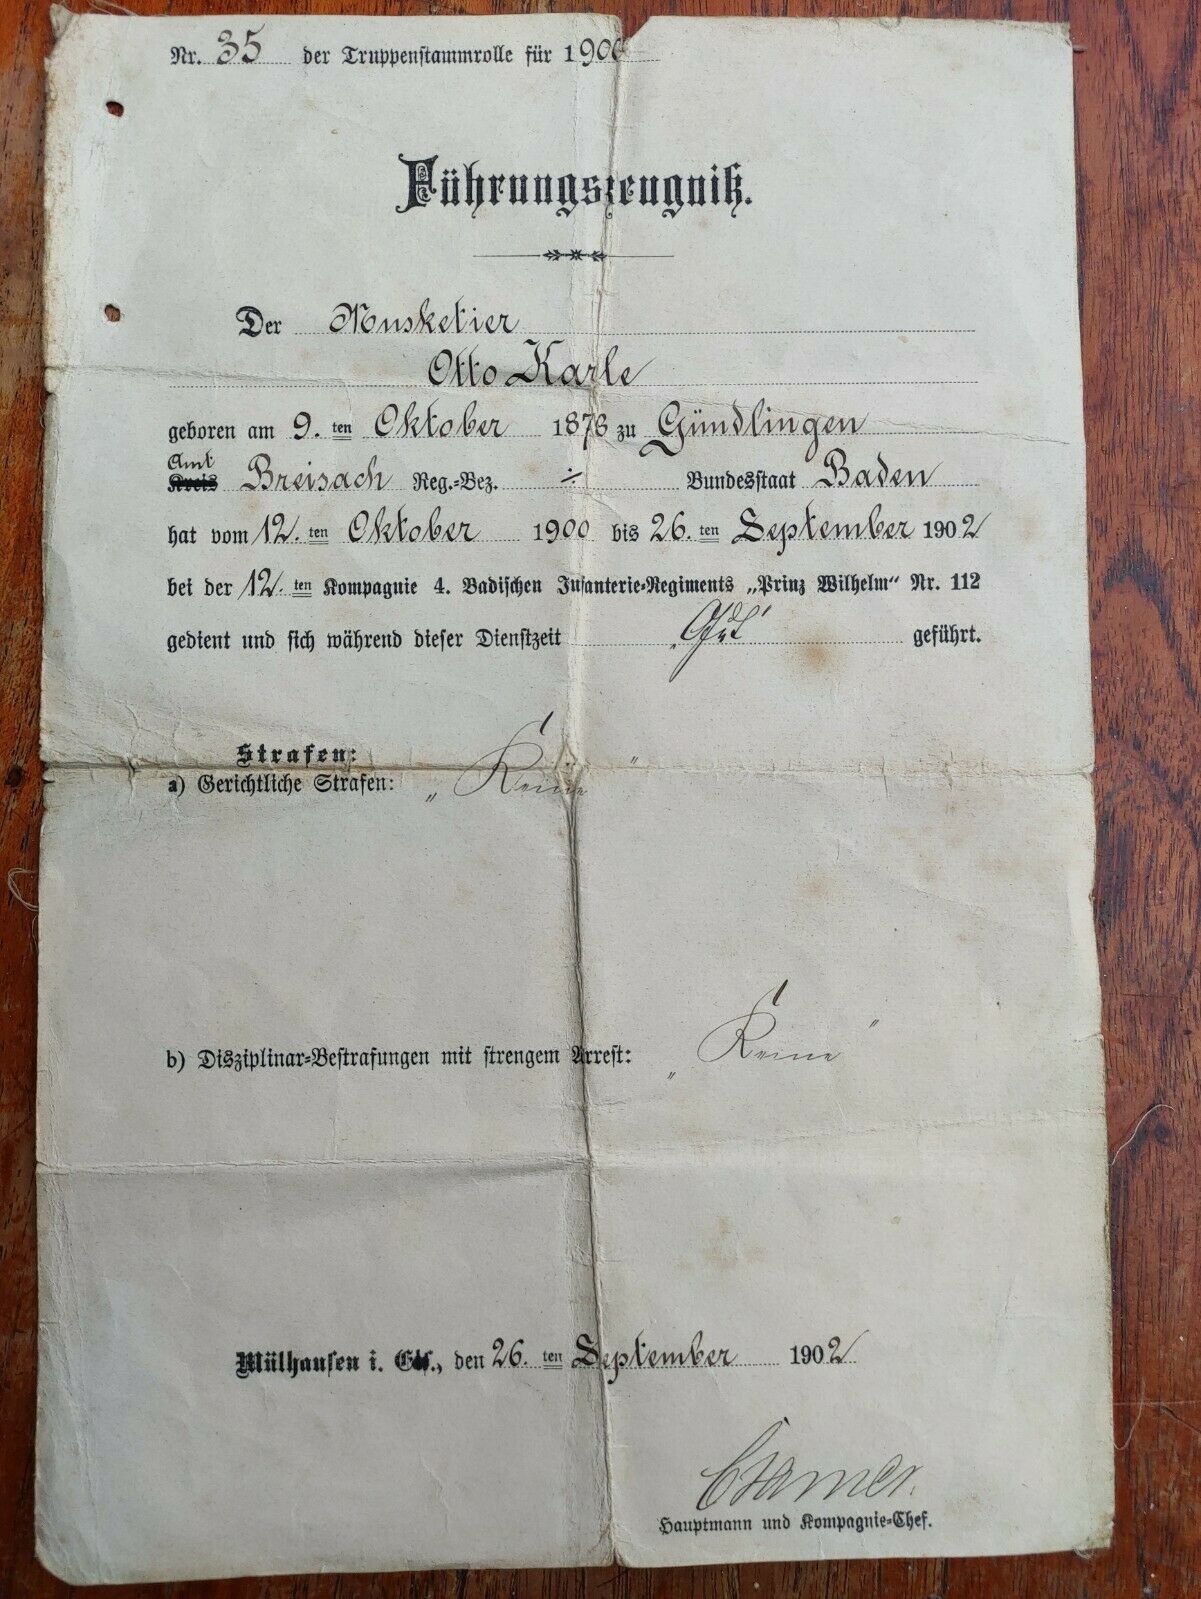 Nr. 35 der Truppenstammrolle für 1900
Führungszeugniß.
Der Musketier
Otto Karle
geboren am 9. ten Oktober 1878 zu Gündlingen
Amt
Kreis Breisach Reg.-Bez. ÷ Bundesstaat Baden
hat vom 12. ten Oktober 1900 bis 26. ten September 1902
bei der 12. ten Kompagnie 4. Badischen Infanterie-Regiments „Prinz Wilhelm“ Nr. 112
gedient und sich während dieser Dienstzeit „Gut“ geführt.
Strafen:
a) Gerichtliche Strafen: „Keine“
b) Disziplinar-Bestrafungen mit strengem Arrest: „Keine“
Mülhausen i. Els., den 26. ten September 1902
Cramer.
Hauptmann und Kompagnie-Chef.